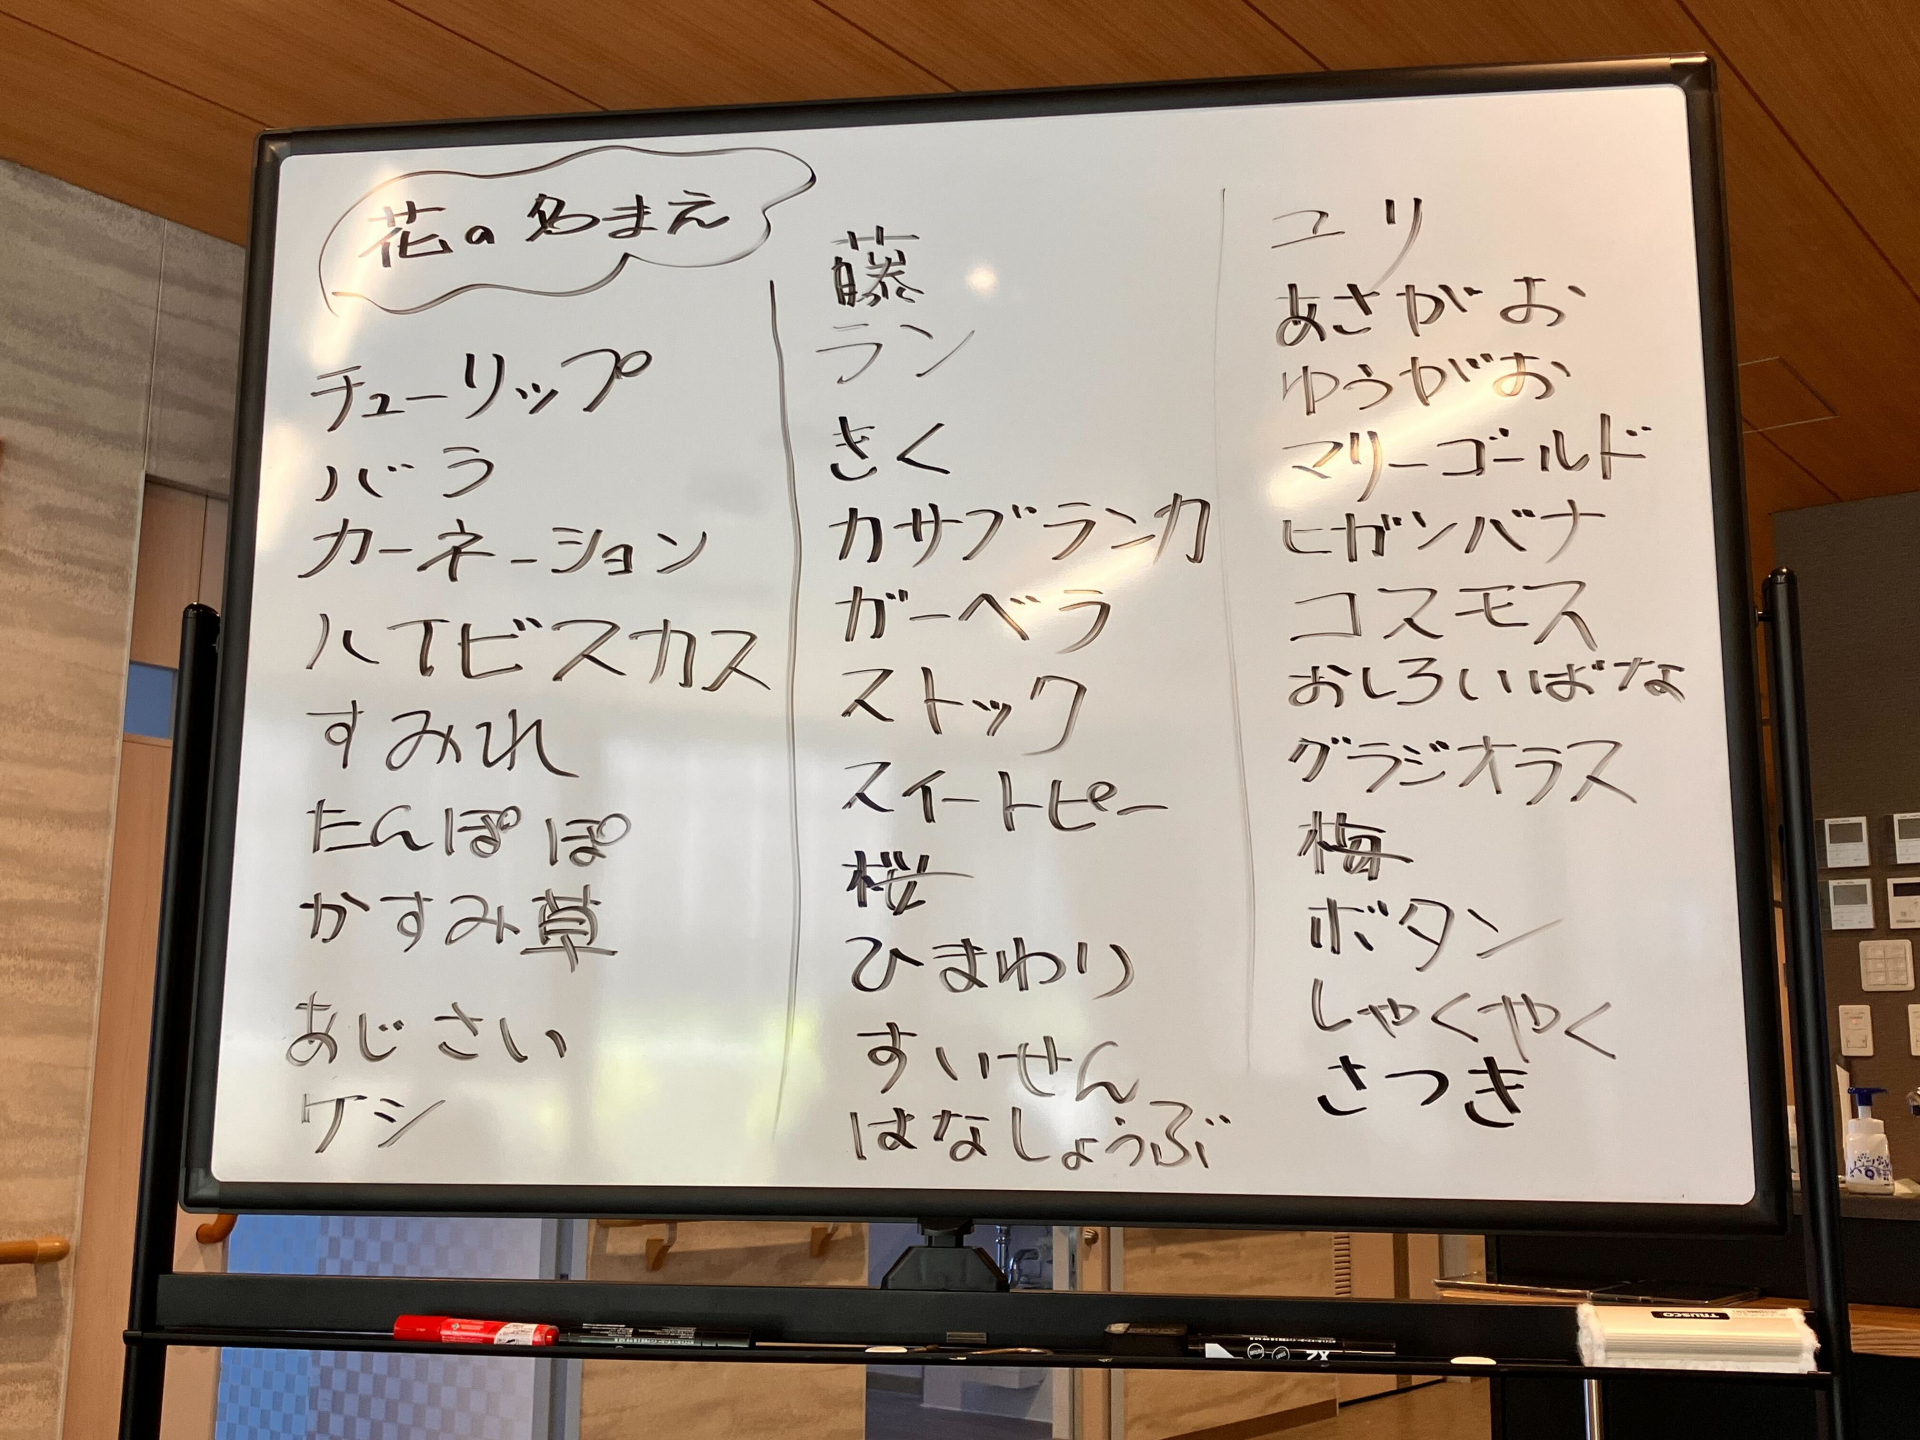 花の名まえ
チューリップ
バラ
カーネーション
ハイビスカス
すみれ
たんぽぽ
かすみ草
あじさい
ケシ
藤
ラン
きく
カサブランカ
ガーベラ
ストック
スイートピー
桜
ひまわり
すいせん
はなしょうぶ
ユリ
あさがお
ゆうがお
マリーゴールド
ヒガンバナ
コスモス
おしろいばな
グラジオラス
梅
ボタン
しゃくやく
さつき
TRUSCO